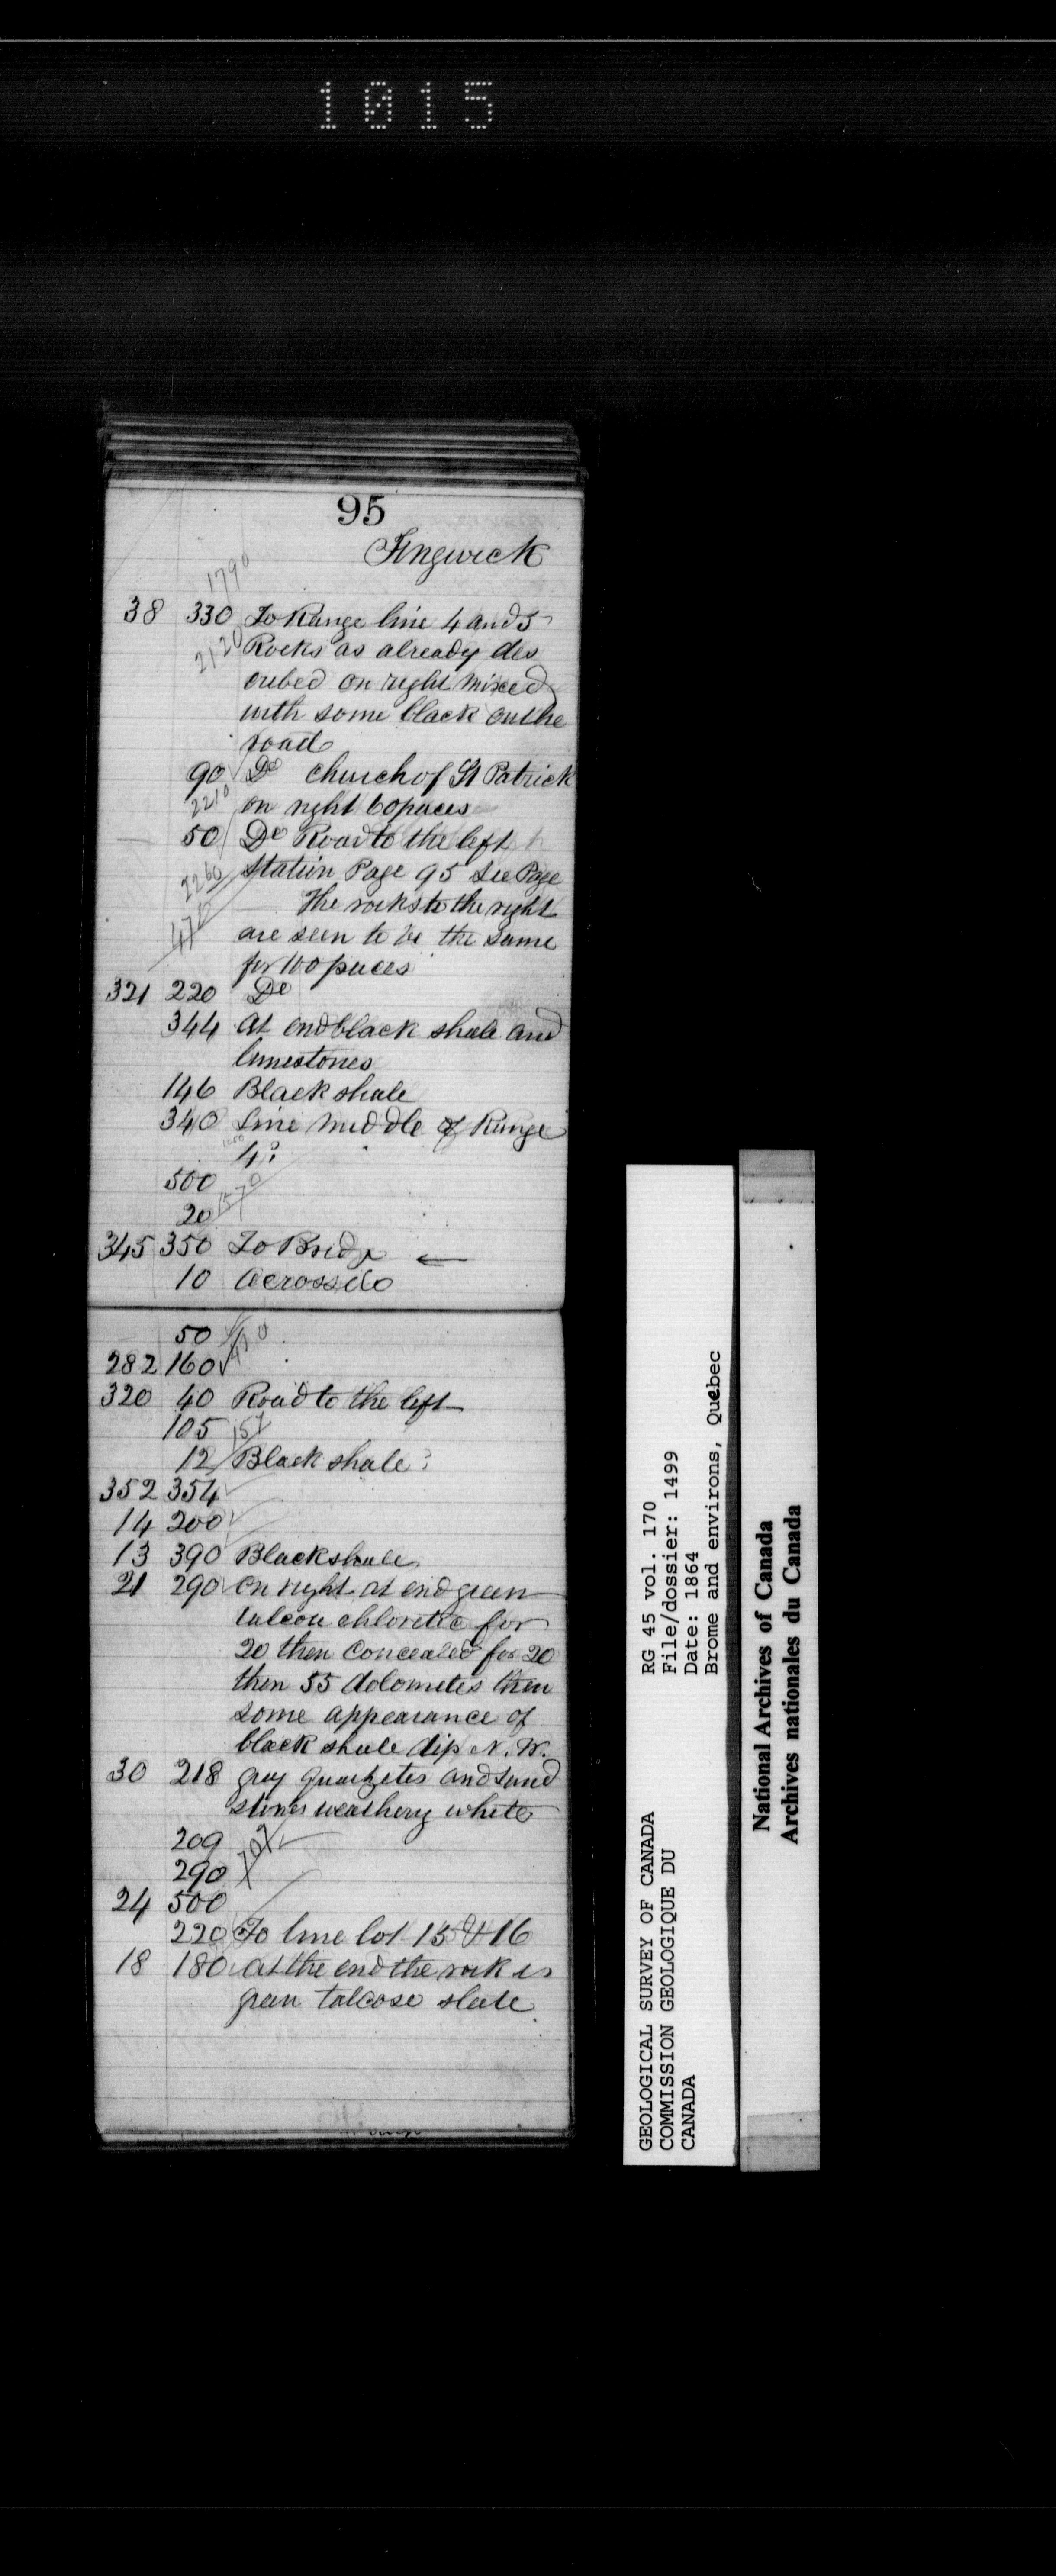 1015
95
Tingwick
1790
38 330 To Range line 4 and 5
2120 Rocks as already des
cribed on right mixed
with some black on the
road
90 Do church of St Patrick
2210 on right 60 paces
50 Do Road to the left
2260 Station Page 95 See Page
The rocks to the right
are seen to be the same
for 100 paces
321 220 Do
344 at end black shale and
limestones
146 Black shale
340 Line middle of Range
4?
500
20 1570
345 350 To Bridge ←
10 Across do
50
282 160
320 40 Road to the left
105 157
12 Black shale?
352 354
14 200
13 390 Black shale
21 290 On right at end green
talcou chloretic for
20 then concealed for 20
then 55 dolomites then
some appearance of
black shale dip N. W.
30 218 grey quartzites and sand
stones weathery white
209 707
290
24 500
220 To line lot 15 & 16
18 180 at the end the rock is
green talcose slate
GEOLOGICAL SURVEY OF CANADA
COMMISSION GEOLOGIQUE DU
CANADA
RG 45 vol. 170
File/dossier: 1499
Date: 1864
Brome and environs, Quebec
National Archives of Canada
Archives nationales du Canada